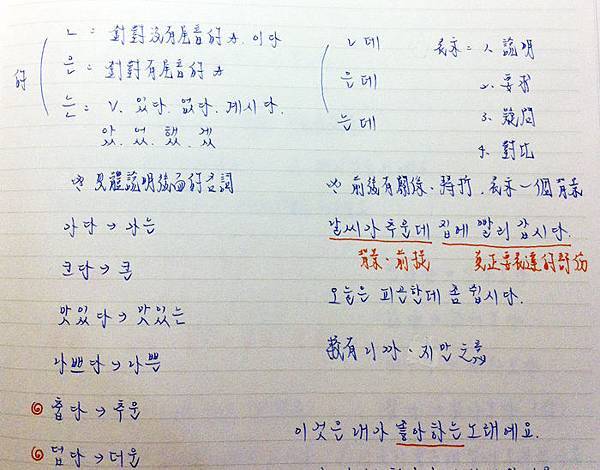 的
ㄴ = 對對沒有尾音的 A. 이다
은 = 對對有尾音的 A
는 = V. 있다. 없다. 계시다.
았. 었. 했. 겠
具體說明後面的名詞
가다 → 가는
크다 → 큰
맛있다 → 맛있는
나쁘다 → 나쁜
춥다 → 추운
덥다 → 더운
ㄴ데 表示 = 1. 說明
은데 2. 要求
는데 3. 疑問
4. 對比
前後有關係、轉折、表示一個背景
날씨가 추운데 집에 빨리 갑시다.
背景、前提 真正要表達的部份
오늘은 피곤한데 좀 쉽시다.
有 니까、지만 之意
이것은 내가 좋아하는 노래예요.